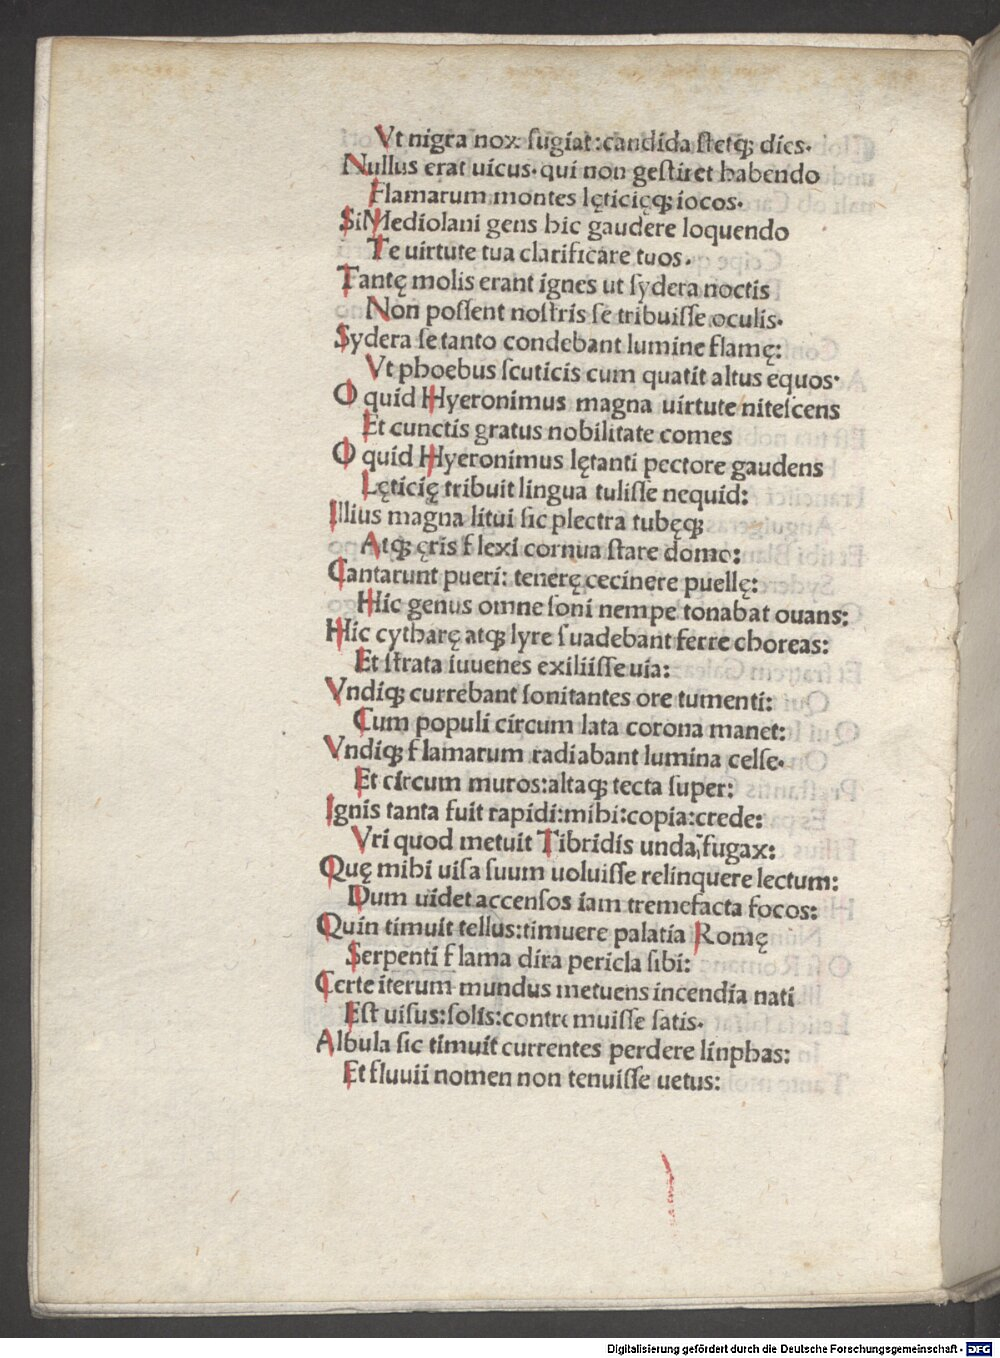 Vt nigra nox fugiat:candida ſtetqꝫ dies.
Nullus erat uicus.qui non geſtiret habendo
Flamarum montes lęticięqꝫ iocos.
Si Mediolani gens hic gaudere loquendo
Te uirtute tua clarificare tuos.
Tantę molis erant ignes ut ſydera noctis
Non poſſent noſtris ſe tribuiſſe oculis.
Sydera ſe tanto condebant lumine flamę:
Vt phoebus ſcuticis cum quatit altus equos.
O quid Hyeronimus magna uirtute niteſcens
Et cunctis gratus nobilitate comes
O quid Hyeronimus lętanti pectore gaudens
Lęticię tribuit lingua tuliſſe nequid:
Illius magna litui ſic plectra tubęqꝫ
Atqꝫ ęris flexi cornua ſtare domo:
Cantarunt pueri: tenerę cecinere puellę:
Hic genus omne ſoni nempe tonabat ouans:
Hic cytharę atqꝫ lyre ſuadebant ferre choreas:
Et ſtrata iuuenes exiliiſſe uia:
Vndiqꝫ currebant ſonitantes ore tumenti:
Cum populi circum lata corona manet:
Vndiqꝫ flamarum radiabant lumina celſe.
Et circum muros:altaqꝫ tecta ſuper:
Ignis tanta fuit rapidi:mihi:copia:crede:
Vri quod metuit Tibridis unda fugax:
Quę mihi uiſa ſuum uoluiſſe relinquere lectum:
Dum uidet accenſos iam tremefacta focos:
Quin timuit tellus:timuere palatia Romę
Serpenti flama dira pericla ſibi:
Certe iterum mundus metuens incendia nati
Eſt uiſus:ſolis:contremuiſſe ſatis.
Albula ſic timuit currentes perdere linphas:
Et fluuii nomen non tenuiſſe uetus:
Digitalisierung gefördert durch die Deutsche Forschungsgemeinschaft - DFG